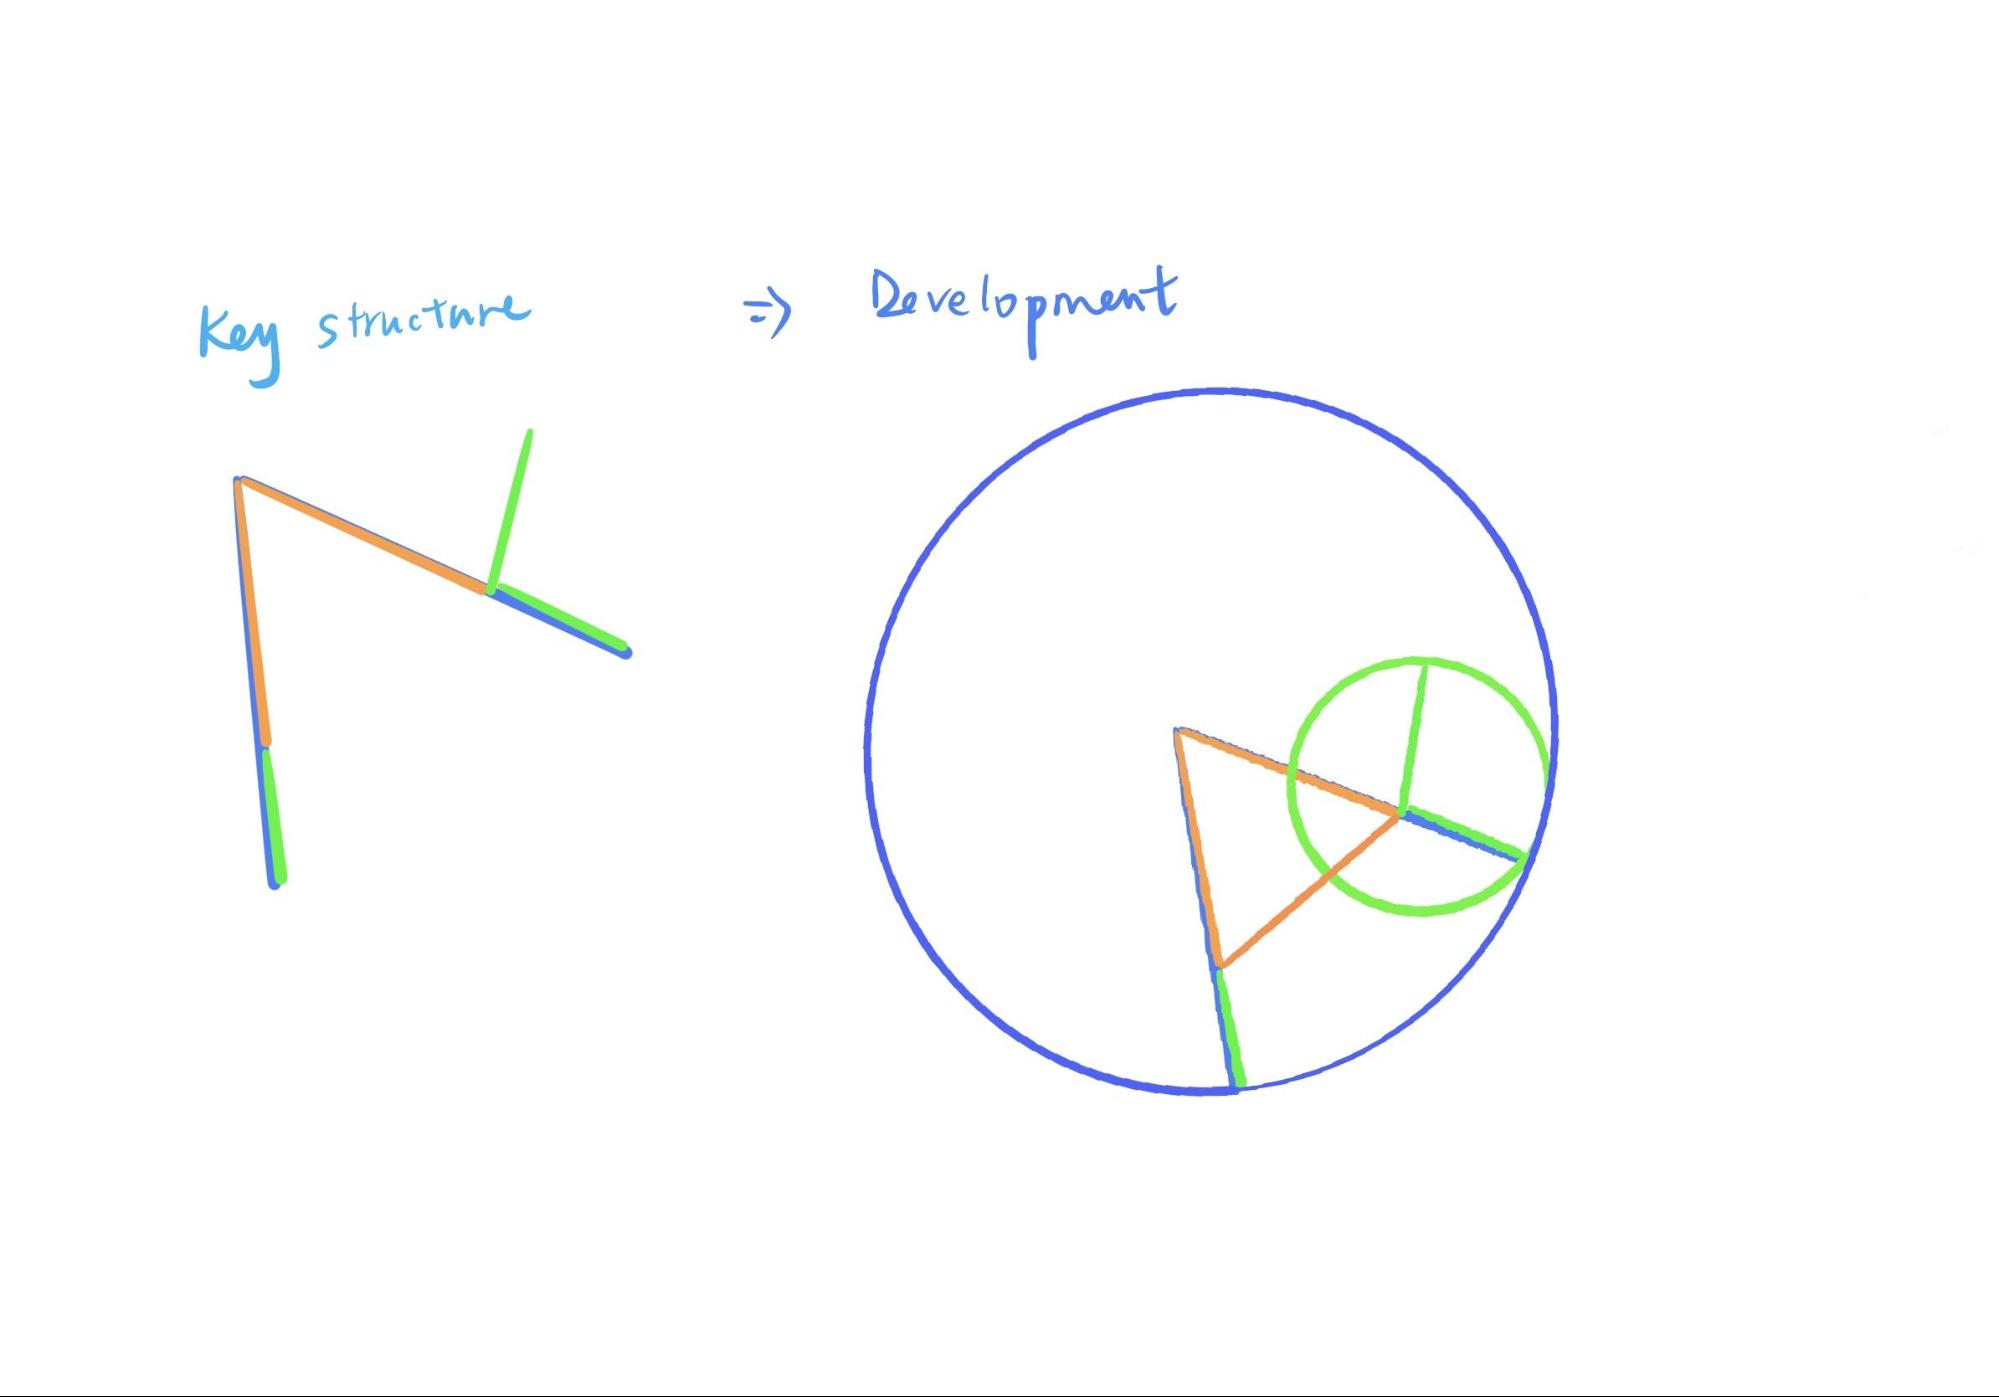 Key structure => Development